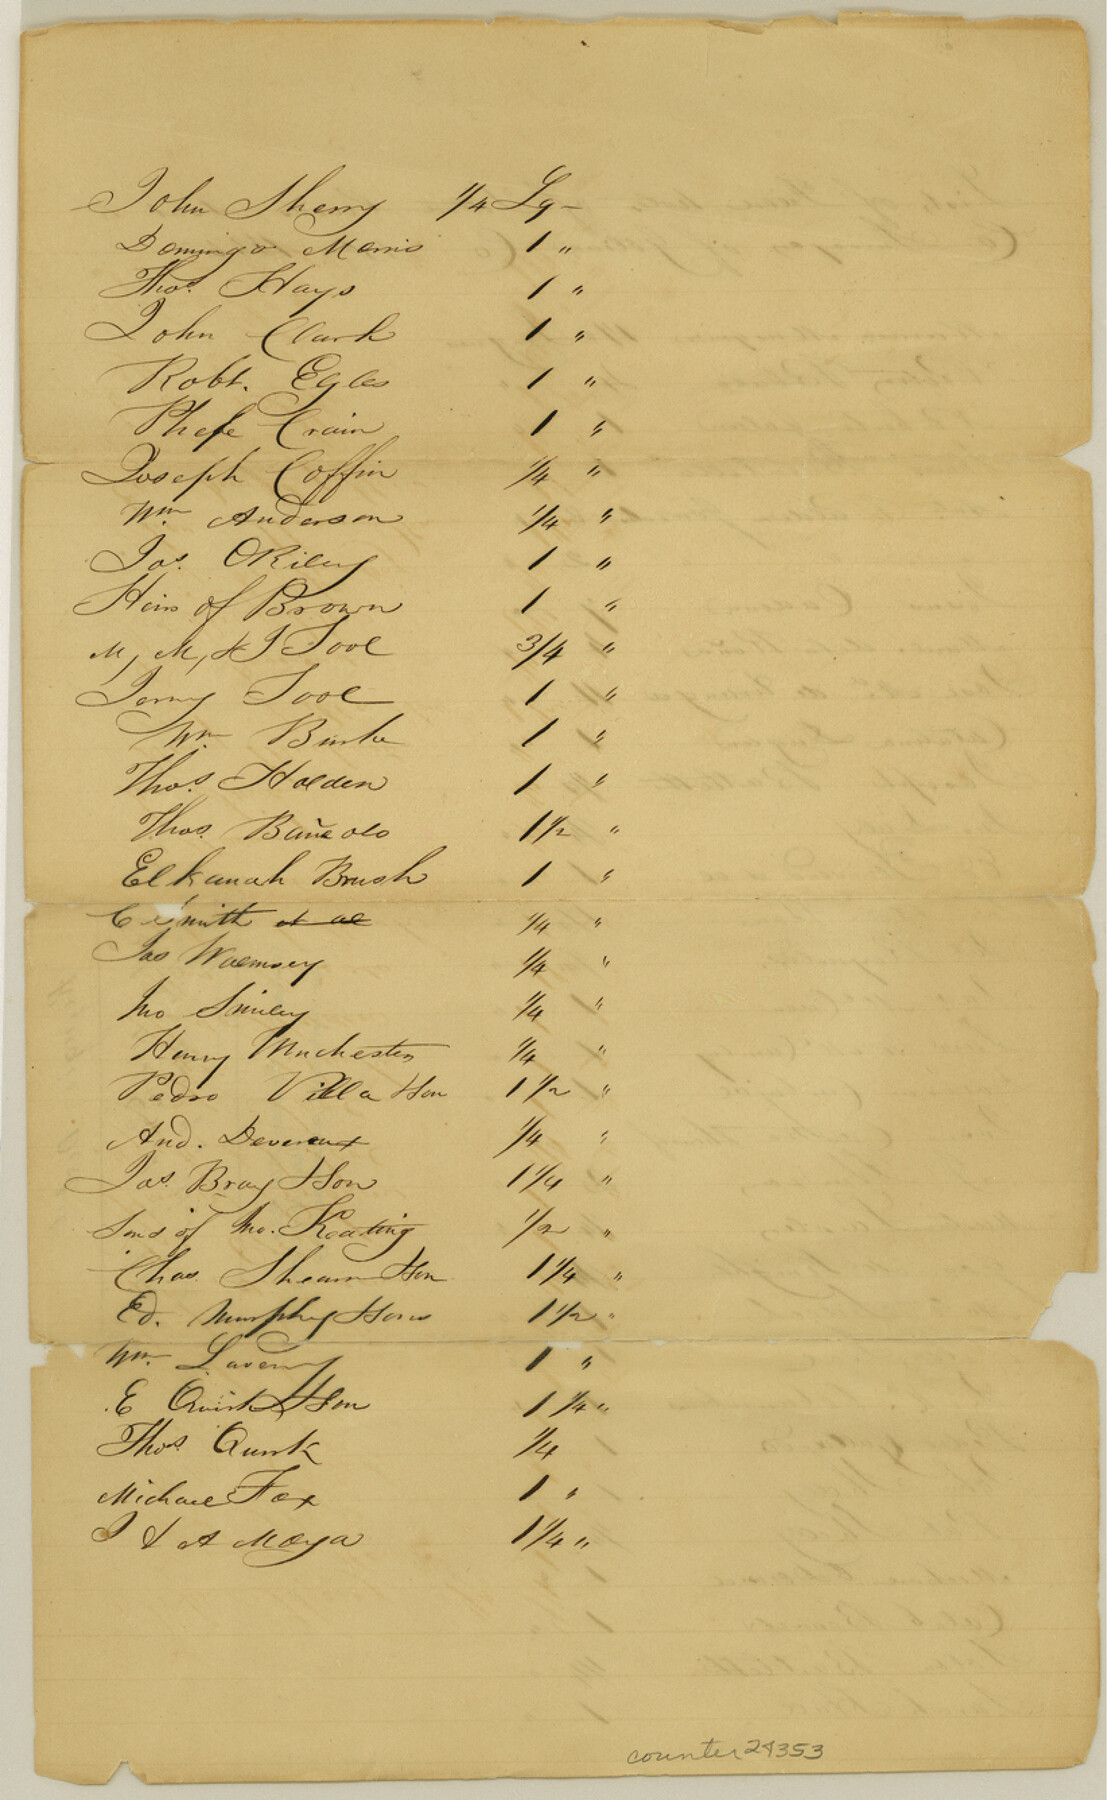 John Sherry 1/4 Lg -
Domingo Morris 1 "
Thos. Hays 1 "
John Clark 1 "
Robt. Egles 1 "
Phefe Crain 1 "
Joseph Coffin 1/4 "
Wm Anderson 1/4 "
Jas. ORiley 1 "
Heirs of Brown 1 "
M, M, & J Tool 3/4 "
Jerry Tool 1 "
Wm Burke 1 "
Thos. Holden 1 "
Thos. Bañuelo 1 1/2 "
Elkanah Brush 1 "
Smith et al 1/4 "
Jas Walmsey 1/4 "
Jno Smiley 1/4 "
Henry Winchester 1/4 "
Pedro Villa & Son 1 1/2 "
And. Devereux 1/4 "
Jas. Bray & Son 1 1/4 "
Sons of Jno. Keating 1/2 "
Chas. Shearn & Son 1 1/4 "
Ed. Murphy & Sons 1 1/2 "
Wm. Lavery 1 "
E Quirk & Son 1 1/4 "
Thos Quirk 1/4
Michael Fox 1 "
J & A Moya 1 1/4 "
counter 24353